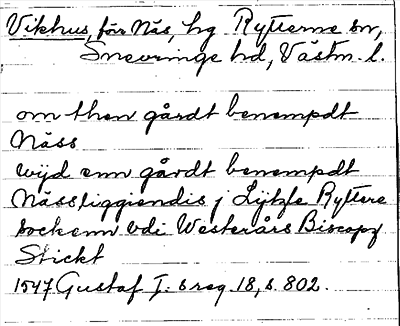 Vikhus, för Näs, hg Rytterne sn,
Snevringe hd, Västm. l.
om then gårdt benempdt
Näss
wijd enn gårdt benempdt
Näss liggiendis j Lijtzle Ryttere
sockenn vdi Westerårs Biscopz
Stickt
1547 Gustaf I:s reg 18, s. 802.